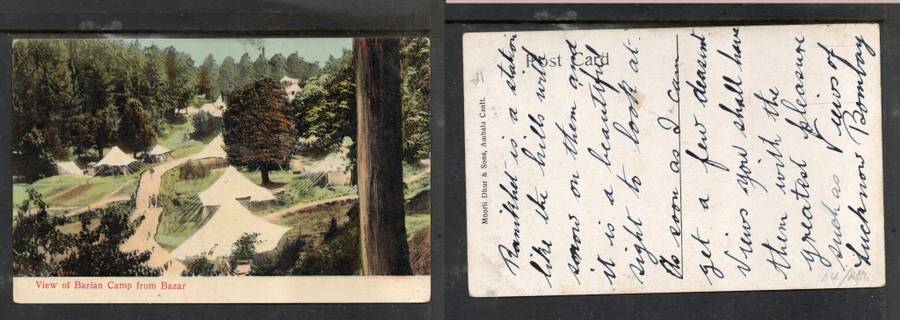 View of Barian Camp from Bazar
Post Card
Moorli Dhur & Sons, Ambala Cantt.
Ranikhet is a station
like the hills wild
snow on them and
it is a beautiful
sight to look at.
As soon as I can
get a few decent
views you shall have
them with the
greatest pleasure
such as views of
Lucknow Bombay